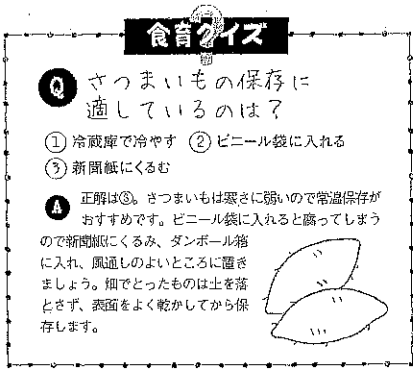 食育クイズ
Q さつまいもの保存に
適しているのは？
① 冷蔵庫で冷やす ② ビニール袋に入れる
③ 新聞紙にくるむ
A 正解は③。さつまいもは寒さに弱いので常温保存が
おすすめです。ビニール袋に入れると腐ってしまう
ので新聞紙にくるみ、ダンボール箱
に入れ、風通しのよいところに置き
ましょう。畑でとったものは土を落
とさず、表面をよく乾かしてから保
存します。